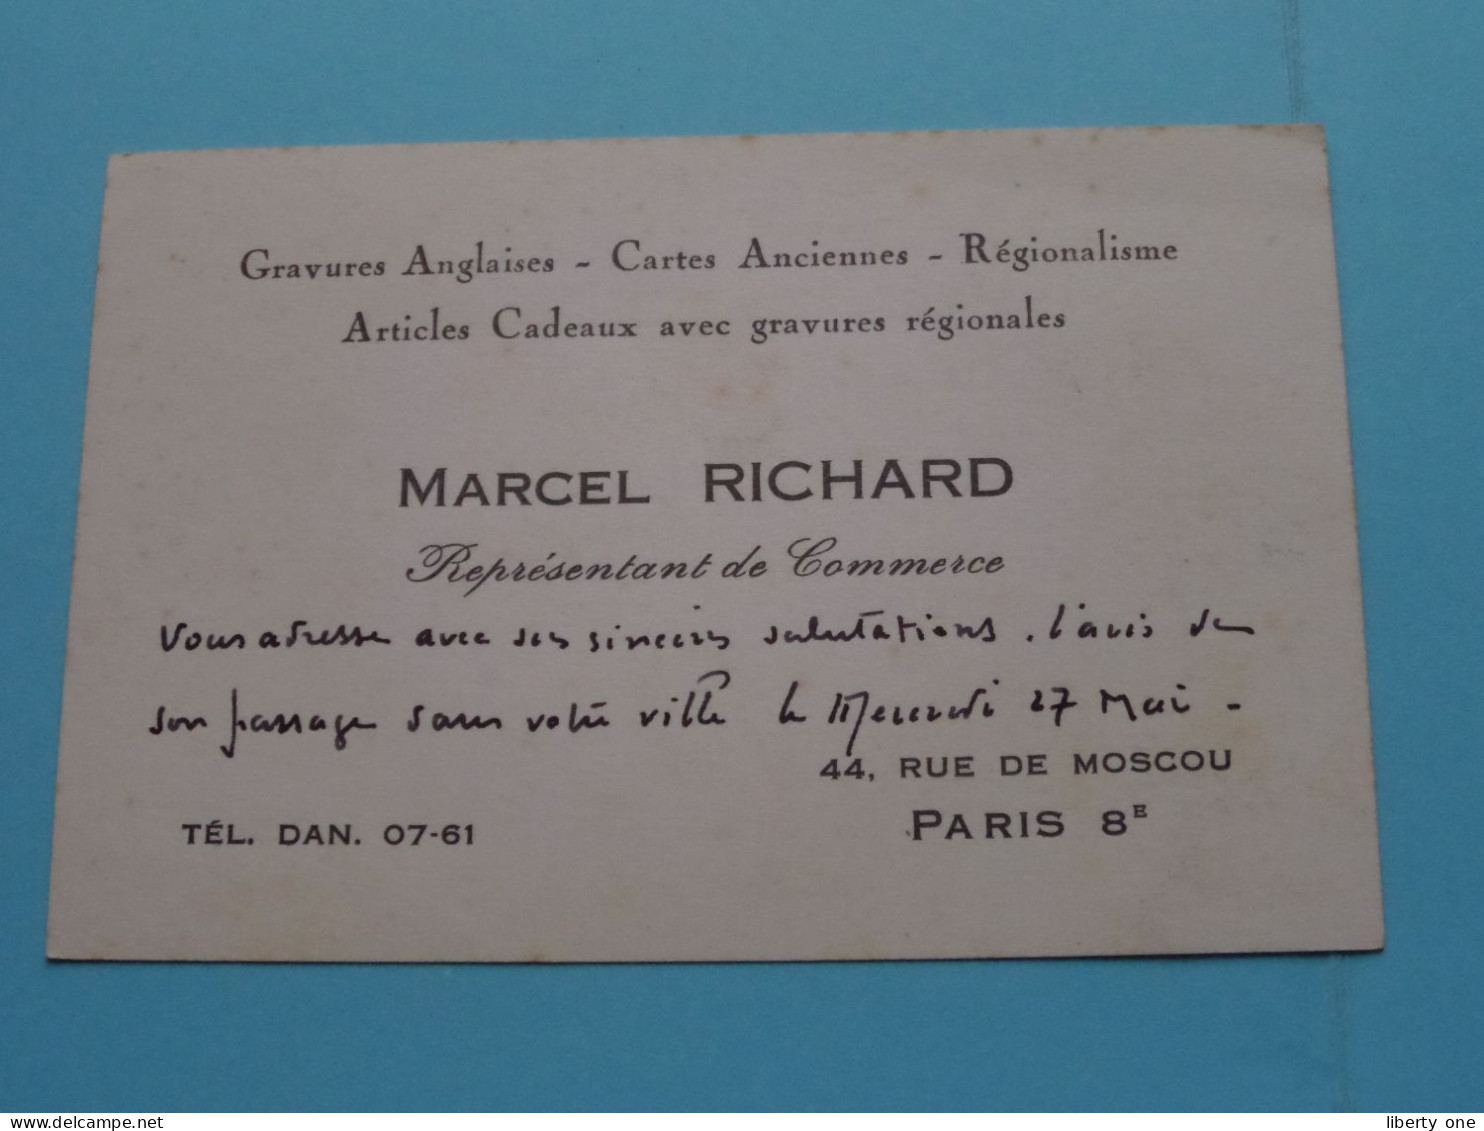 Gravures Anglaises - Cartes Anciennes - Régionalisme
Articles Cadeaux avec gravures régionales
MARCEL RICHARD
Représentant de Commerce
Vous adresse avec ses sincères salutations, l'avis de
son passage dans votre ville le Mercredi 27 Mai -
44, RUE DE MOSCOU
TÉL. DAN. 07-61
PARIS 8E
delcampe.net
liberty one